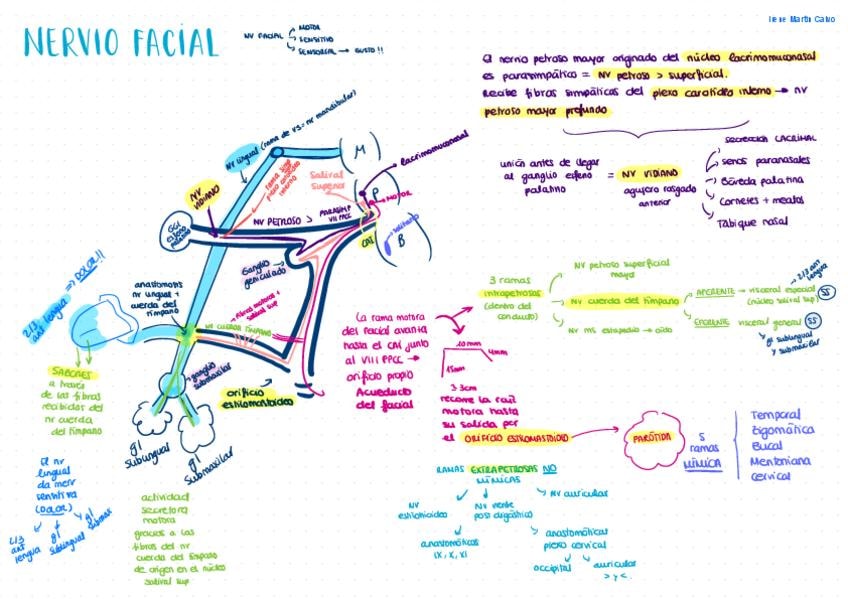 Irene Martín Calvo
NERVIO FACIAL
NV FACIAL
MOTOR
SENSITIVO
SENSORIAL → GUSTO !!
El nervio petroso mayor originado del núcleo lacrimomuconasal
es parasimpático = NV petroso > superficial.
Recibe fibras simpáticas del plexo carotídeo interno → nv
petroso mayor profundo
unión antes de llegar
al ganglio esfeno
palatino
= NV VIDIANO
agujero rasgado
anterior
SECRECIÓN LACRIMAL
senos paranasales
Bóveda palatina
Cornetes + meatos
Tabique nasal
NV lingual (rama de V3 = nr mandibular)
M
lacrimomuconasal
rama simp
plexo carotídeo
interno
Salival
Superior
P
MOTOR
NV
VIDIANO
NV PETROSO >
PARASIMP
VII PPCC
GG
esfeno
palatino
CAI
solitario
B
Ganglio
geniculado
2/3
ant lengua
=> DOLOR!!
anastomosis
nr lingual +
cuerda del
tímpano
fibras motoras +
salival sup
NV CUERDA TÍMPANO
SABORES
a través
de las fibras
recibidas del
nr cuerda
del tímpano
ganglio
submaxilar
orificio
estilomastoideo
gl
sublingual
gl
submaxilar
La rama motora
del facial avanza
hasta el CAI junto
al VIII PPCC →
orificio propio
Acueducto
del facial
10mm
4mm
15mm
3-3cm
recorre la raíz
motora hasta
su salida por
el ORIFICIO ESTILOMASTOIDEO
3 ramas
intrapetrosas
(dentro del
conducto)
NV petroso superficial
mayor
NV cuerda del tímpano
NV ms estapedio → oído
AFERENTE → visceral especial
(núcleo salival sup)
SS
2/3 ant
lengua
EFERENTE
visceral general
SS
gl sublingual
y submaxilar
PARÓTIDA
5
ramas
MÍMICA
Temporal
Zigomática
Bucal
Mentoniana
Cervical
RAMAS EXTRAPETROSAS NO
MÍMICAS
NV
estilohioideo
NV vientre
post digástrico
NV auricular
anastomóticas
IX, X, XI
anastomóticas
plexo cervical
occipital
auricular
> y <.
El nr
lingual
da inerv
sensitiva
(DOLOR)
2/3
ant
lengua
gl
sublingual
gl
submax
actividad
secretora
motora
gracias a las
fibras del nr
cuerda del tímpano
de origen en el núcleo
salival sup